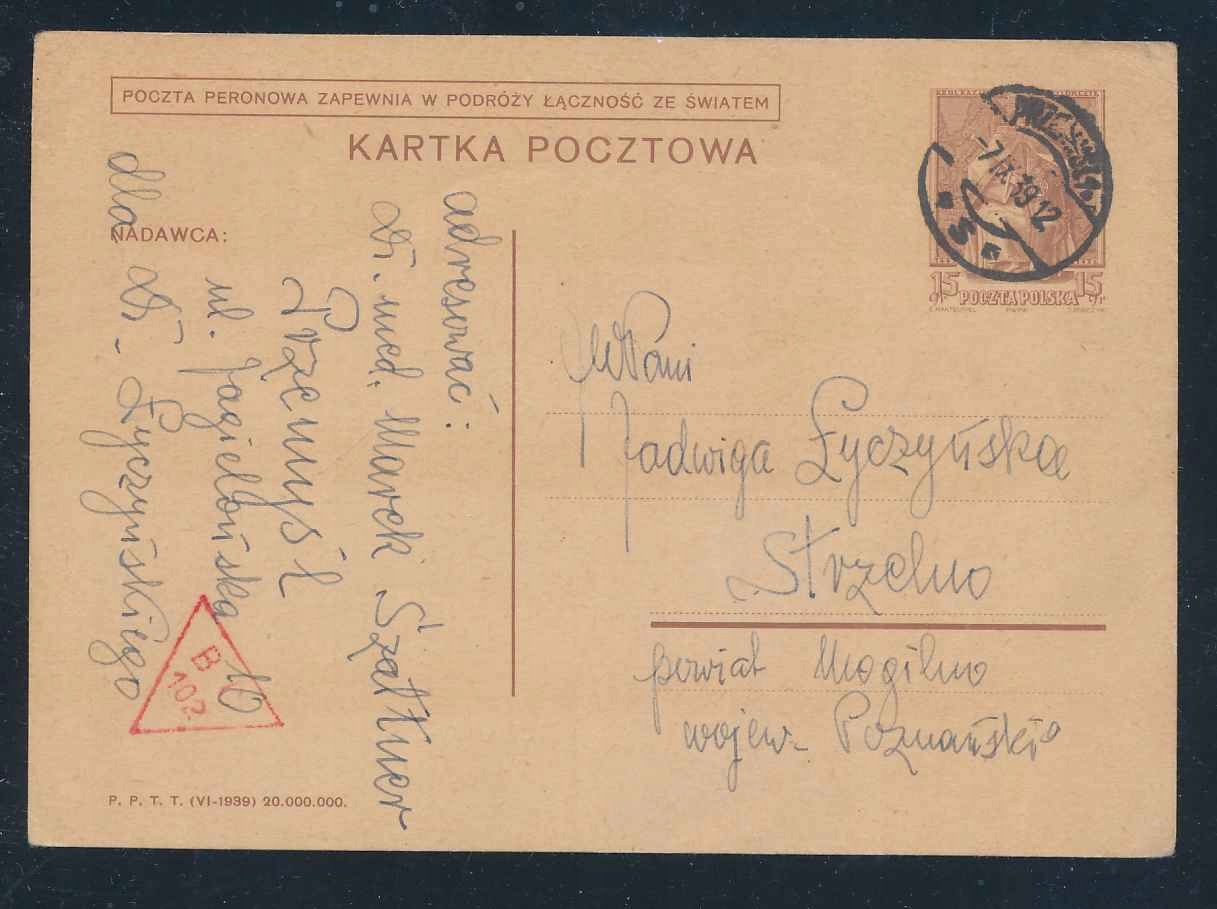 POCZTA PERONOWA ZAPEWNIA W PODRÓŻY ŁĄCZNOŚĆ ZE ŚWIATEM
KARTKA POCZTOWA
NADAWCA:
adresować:
Dr. med. Marek
Przemyśl
ul. Jagiellońska 10
dla Dr. Łyczyńskiego
B
102
P. P. T. T. (VI-1939) 20.000.000.
-7 IX 39 12
15 gr POCZTA POLSKA 15 gr
WPani
Jadwiga Łyczyńska
Strzelno
powiat Mogilno
wojew. Poznańskie